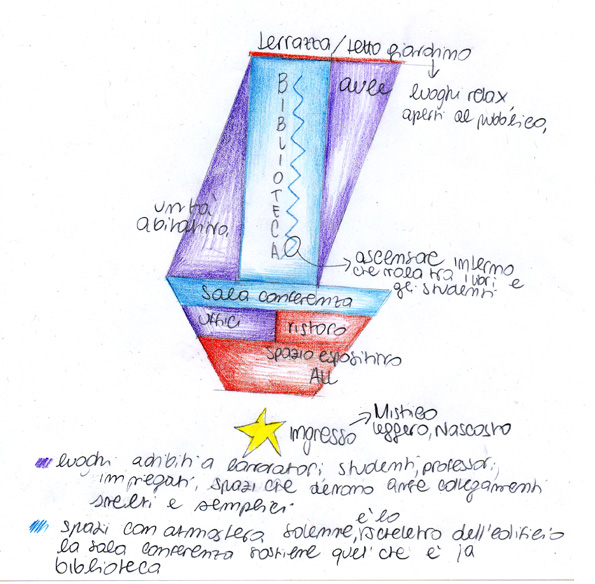 terrazza/tetto giardino
aule
luoghi relax,
aperti al pubblico,
BIBLIOTECA
unità
abitativa
ascensore interno
che ruota tra i libri e
gli studenti
sala conferenza
uffici
ristoro
spazio espositivo
ALL
ingresso
Mistico
leggero, Nascosto
luoghi adibiti a lavoratori, studenti, professori,
impiegati, spazi che devono avere collegamenti
svelti e semplici
spazi con atmosfera solenne, è lo scheletro dell'edificio
la sala conferenza sostiene quel che è la
biblioteca